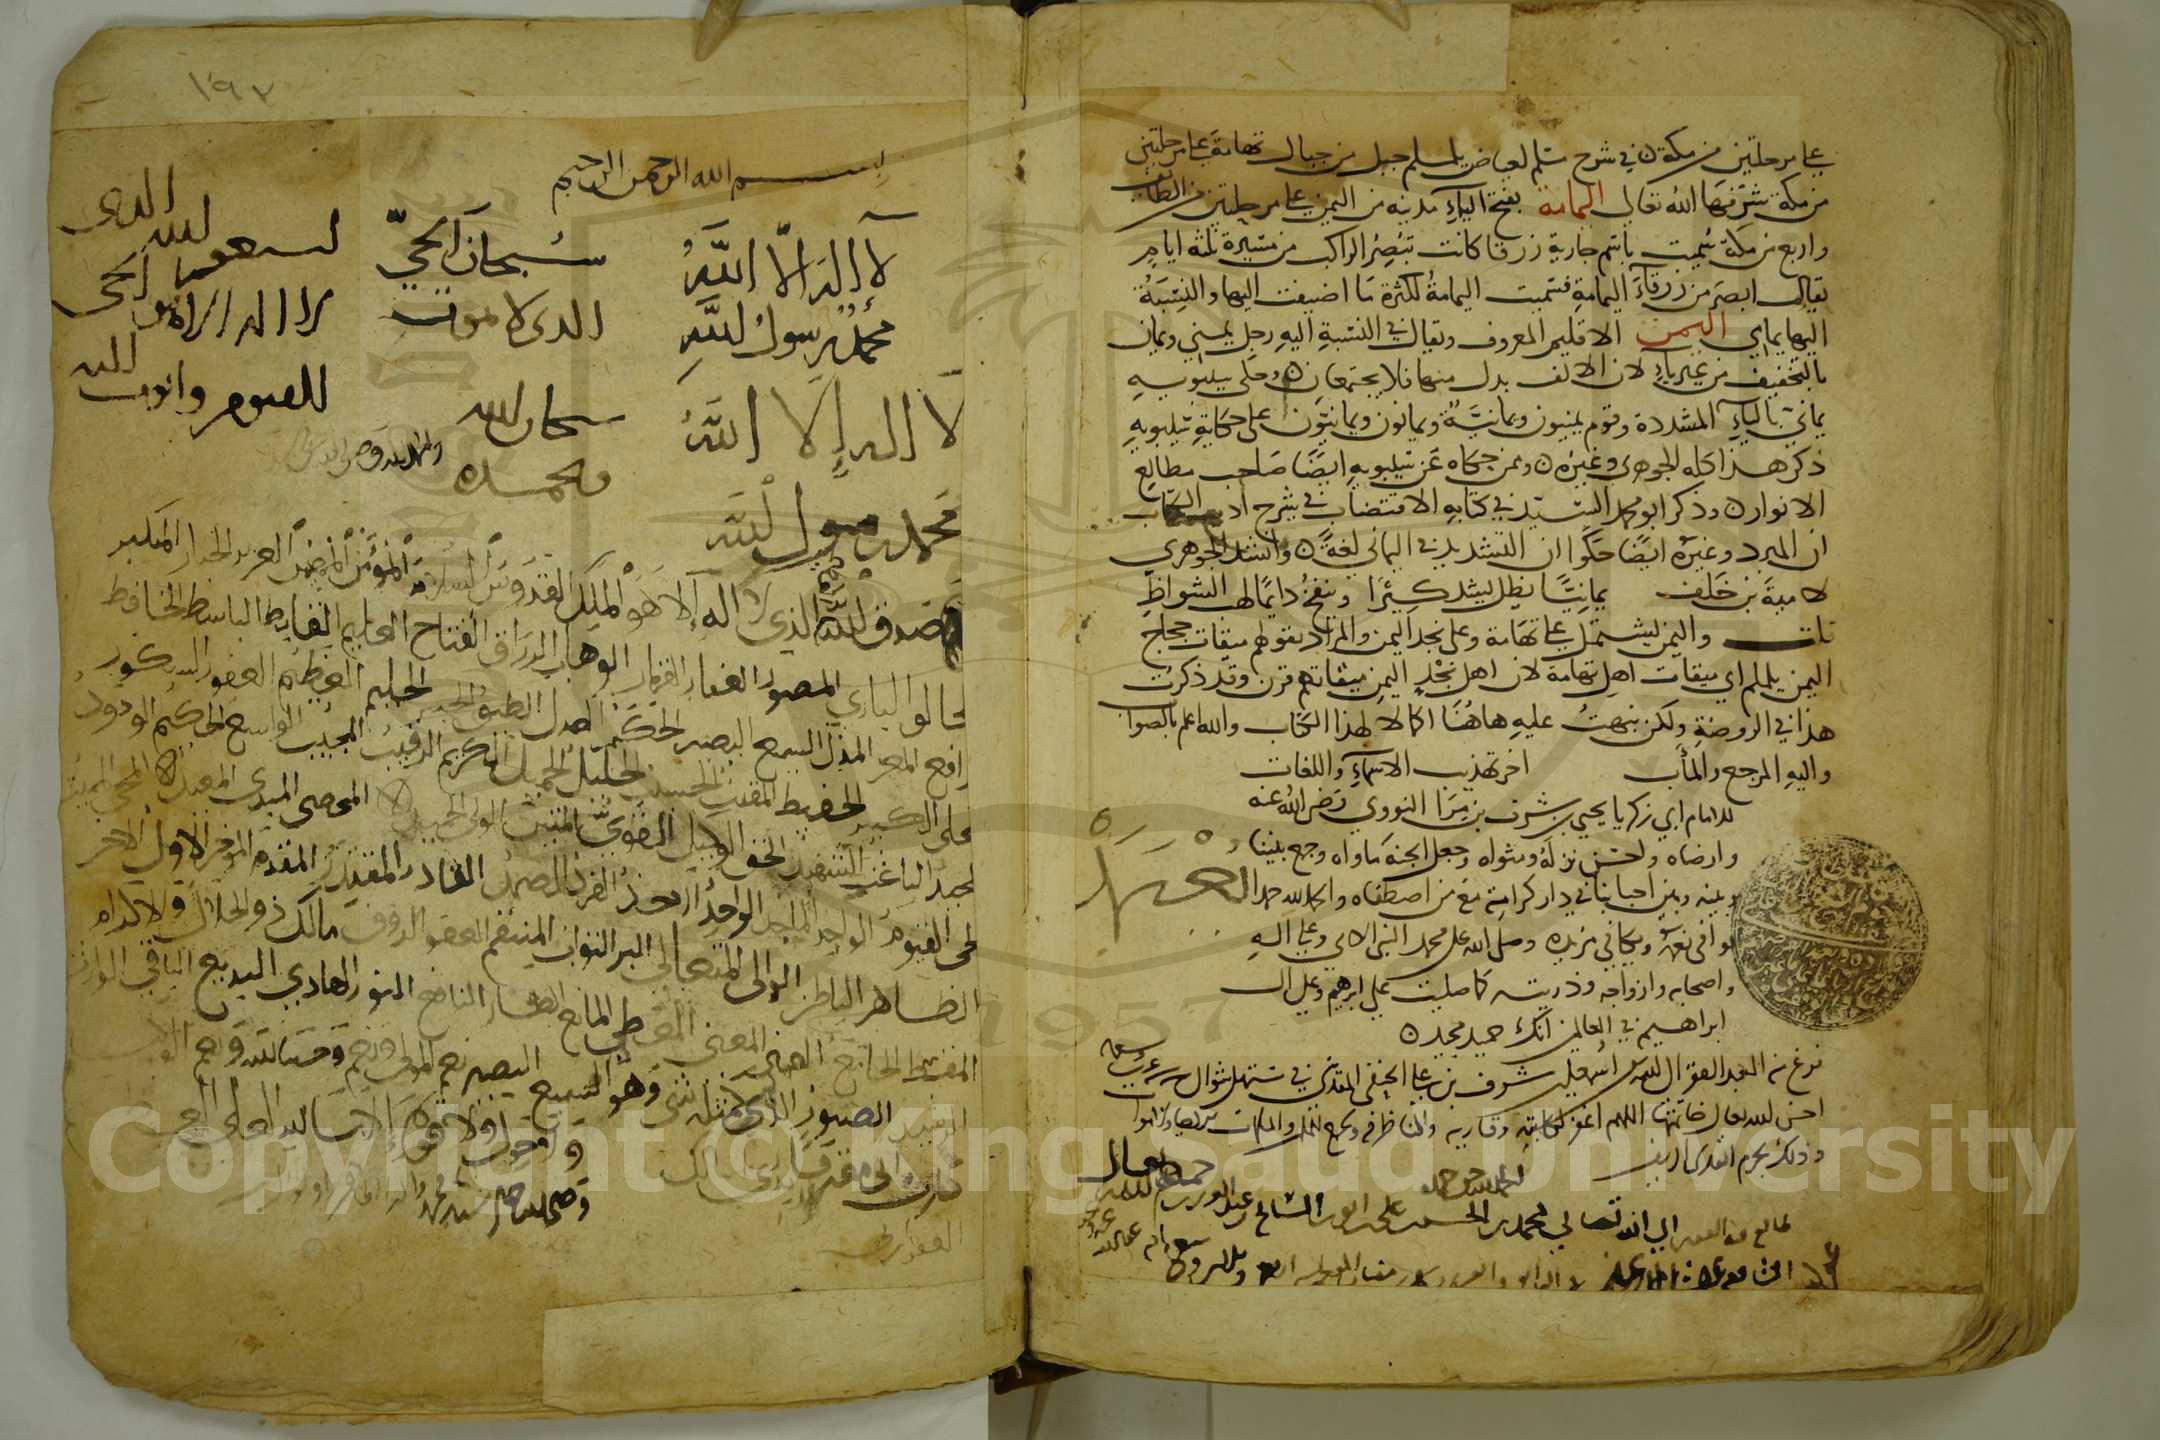 على مرحلتين من مكة ن في شرح مسلم لعياض يلملم جبل من جبال تهامة على مرحلتين
من مكة شرفها الله تعالى اليمامة بفتح الياء مدينة من اليمن على مرحلتين من الطائف
واربع من مكة سميت باسم جارية زرقا كانت تبصر الراكب من مسيرة ثلثة ايام
يقال ابصر من زرقاء اليمامة فسميت اليمامة لكثرة ما اضيفت اليها والنسبة
اليها يمامي اليمن الاقليم المعروف ويقال في النسبة اليه رجل يمني ويمان
بالتخفيف من غير ياء لان الالف بدل منها فلا يجتمعان ن وحكى سيبويه
يماني بالياء المشددة وقوم يمنيون ويمانية ويمانون ويمانيون على حكاية سيبويه
ذكر هذا كله الجوهري وغيره ن وممن حكاه عن سيبويه ايضا صاحب مطالع
الانوار ن وذكر ابو محمد السيد في كتابه الاقتضاب في شرح ادب الكتاب
ان المبرد وغيره ايضا حكوا ان التشديد في اليماني لغة ن وانشد الجوهري
لامية بن خلف يمانيا يظل يشد كيرا وينفخ دائما لهب الشواظ
قلت واليمن يشتمل على تهامة وعلى نجد اليمن والمراد بقولهم ميقات حجاج
اليمن يلملم اي ميقات اهل تهامة لان اهل نجد اليمن ميقاتهم قرن وقد ذكرت
هذا في الروضة ولكن نبهت عليه هاهنا اكمالا لهذا الكتاب والله اعلم بالصواب
واليه المرجع والمآب اخر تهذيب الاسماء واللغات
للامام ابي زكريا يحيى بن شرف بن مرا النووي رضي الله عنه
وارضاه واحسن نزله ومثواه وجعل الجنة ماواه وجمع بيننا
وبينه وبين احبابنا في دار كرامته مع من اصطفاه والحمد لله حمدا
يوافي نعمه ويكافي مزيده وصلى الله على محمد النبي الامي وعلى اله
واصحابه وازواجه وذريته كما صليت على ابرهيم وعلى ال
ابراهيم في العالمين انك حميد مجيد ن
فرغ منه العبد الفقير الى الله اسمعيل بن شرف بن علي الحنفي المقدسي في مستهل شوال
احسن الله تعالى خاتمتها اللهم اغفر لكاتبه وقاريه والناظر فيه ولجميع المسلمين
وذلك بحرم القدس الشريف
طالع فيه الفقير الى الله تعالى محمد بن
الشافعي
١٩٣
بسم الله الرحمن الرحيم
لا اله الا الله
محمد رسول الله
لا اله الا الله
محمد رسول الله
سبحان الحي
الذي لا يموت
سبحان الله
وبحمده
استغفر الله الذي
لا اله الا هو الحي
القيوم واتوب اليه
صدق الله الذي لا اله الا هو الملك القدوس السلام المؤمن المهيمن العزيز الجبار المتكبر
الخالق الباري المصور الغفار القهار الوهاب الرزاق الفتاح العليم القابض الباسط الخافض
الرافع المعز المذل السميع البصير الحكم العدل اللطيف الخبير الحليم العظيم الغفور الشكور
العلي الكبير الحفيظ المقيت الحسيب الجليل الجميل الكريم الرقيب المجيب الواسع الحكيم الودود
المجيد الباعث الشهيد الحق الوكيل القوي المتين الولي الحميد المحصي المبدي المعيد المحيي المميت
الحي القيوم الواجد الماجد الواحد الاحد الفرد الصمد القادر المقتدر المقدم المؤخر الاول الاخر
الظاهر الباطن الوالي المتعالي البر التواب المنتقم العفو الرؤف مالك ذو الجلال والاكرام
المقسط الجامع الغني المغني المعطي المانع الضار النافع النور الهادي البديع الباقي الوارث
الرشيد الصبور الذي ليس كمثله شي وهو السميع البصير نعم المولى ونعم
ولا حول ولا قوة الا بالله العلي العظيم
Copyright © King Saud University
1957